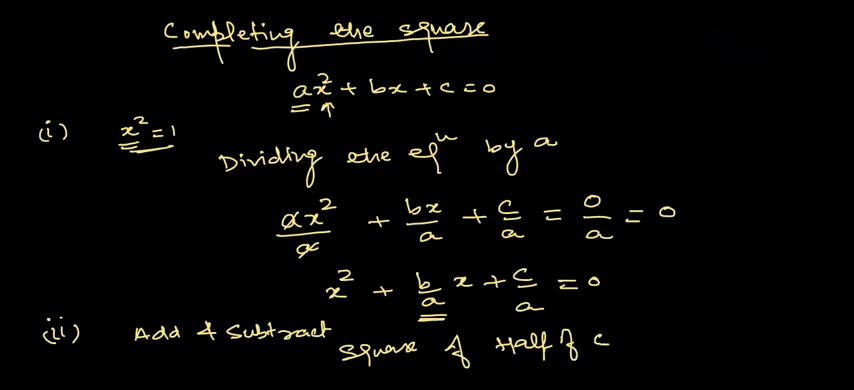 Completing the square
ax² + bx + c = 0
(i) x² = 1
Dividing the eqⁿ by a
ax²/a + bx/a + c/a = 0/a = 0
x² + b/a x + c/a = 0
(ii) Add & Subtract square of Half of c